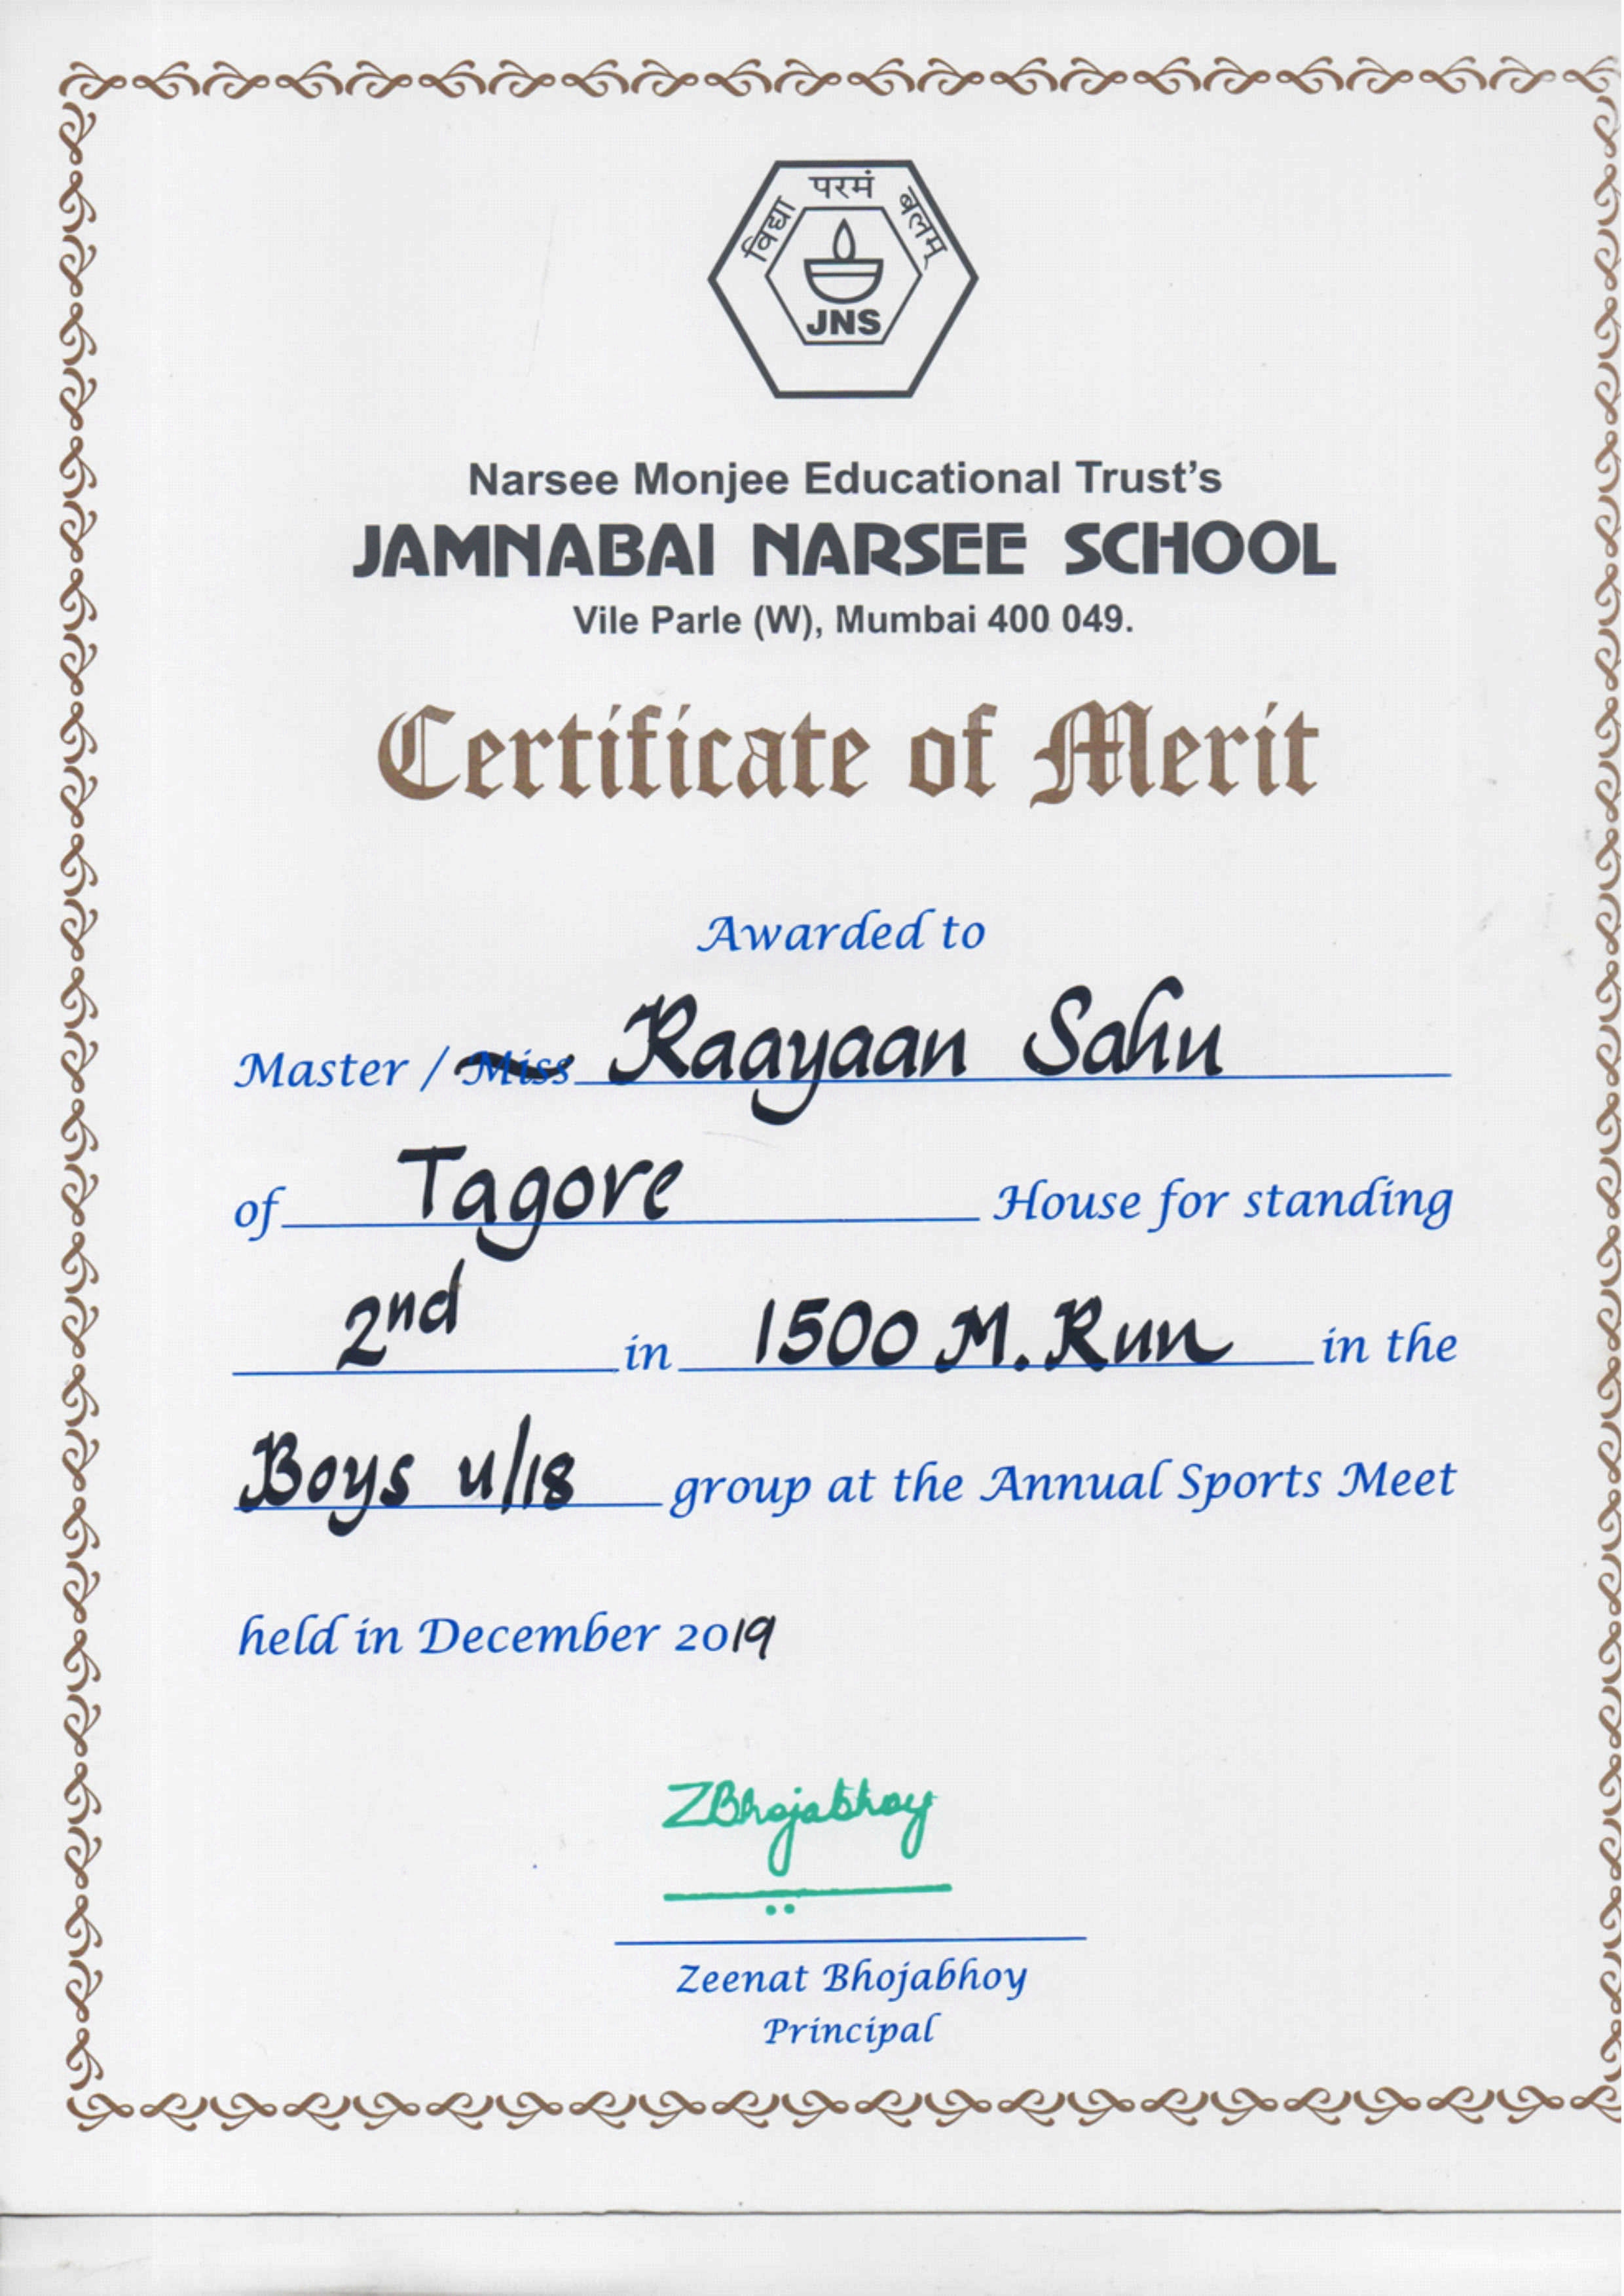 विद्या परमं बलम्
JNS
Narsee Monjee Educational Trust's
JAMNABAI NARSEE SCHOOL
Vile Parle (W), Mumbai 400 049.
Certificate of Merit
Awarded to
Master / Miss Raayaan Sahu
of Tagore House for standing
2nd in 1500 M. Run in the
Boys u/18 group at the Annual Sports Meet
held in December 2019
ZBhojabhoy
Zeenat Bhojabhoy
Principal